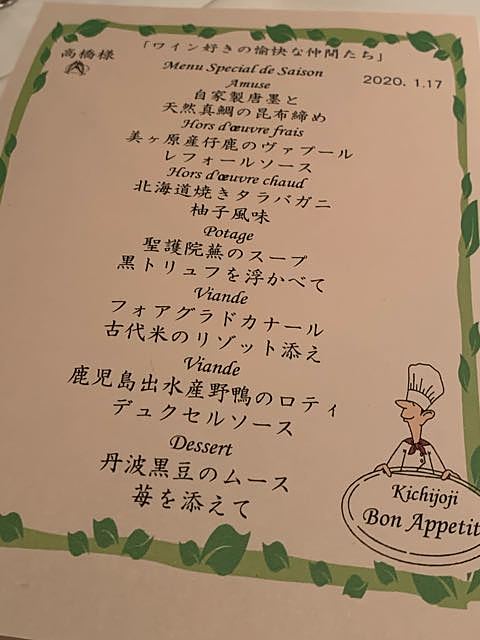 「ワイン好きの愉快な仲間たち」
高橋様
Menu Special de Saison
2020. 1.17
Amuse
自家製唐墨と
天然真鯛の昆布締め
Hors d'œuvre frais
美ヶ原産仔鹿のヴァプール
レフォールソース
Hors d'œuvre chaud
北海道焼きタラバガニ
柚子風味
Potage
聖護院蕪のスープ
黒トリュフを浮かべて
Viande
フォアグラドカナール
古代米のリゾット添え
Viande
鹿児島出水産野鴨のロティ
デュクセルソース
Dessert
丹波黒豆のムース
苺を添えて
Kichijoji
Bon Appetit